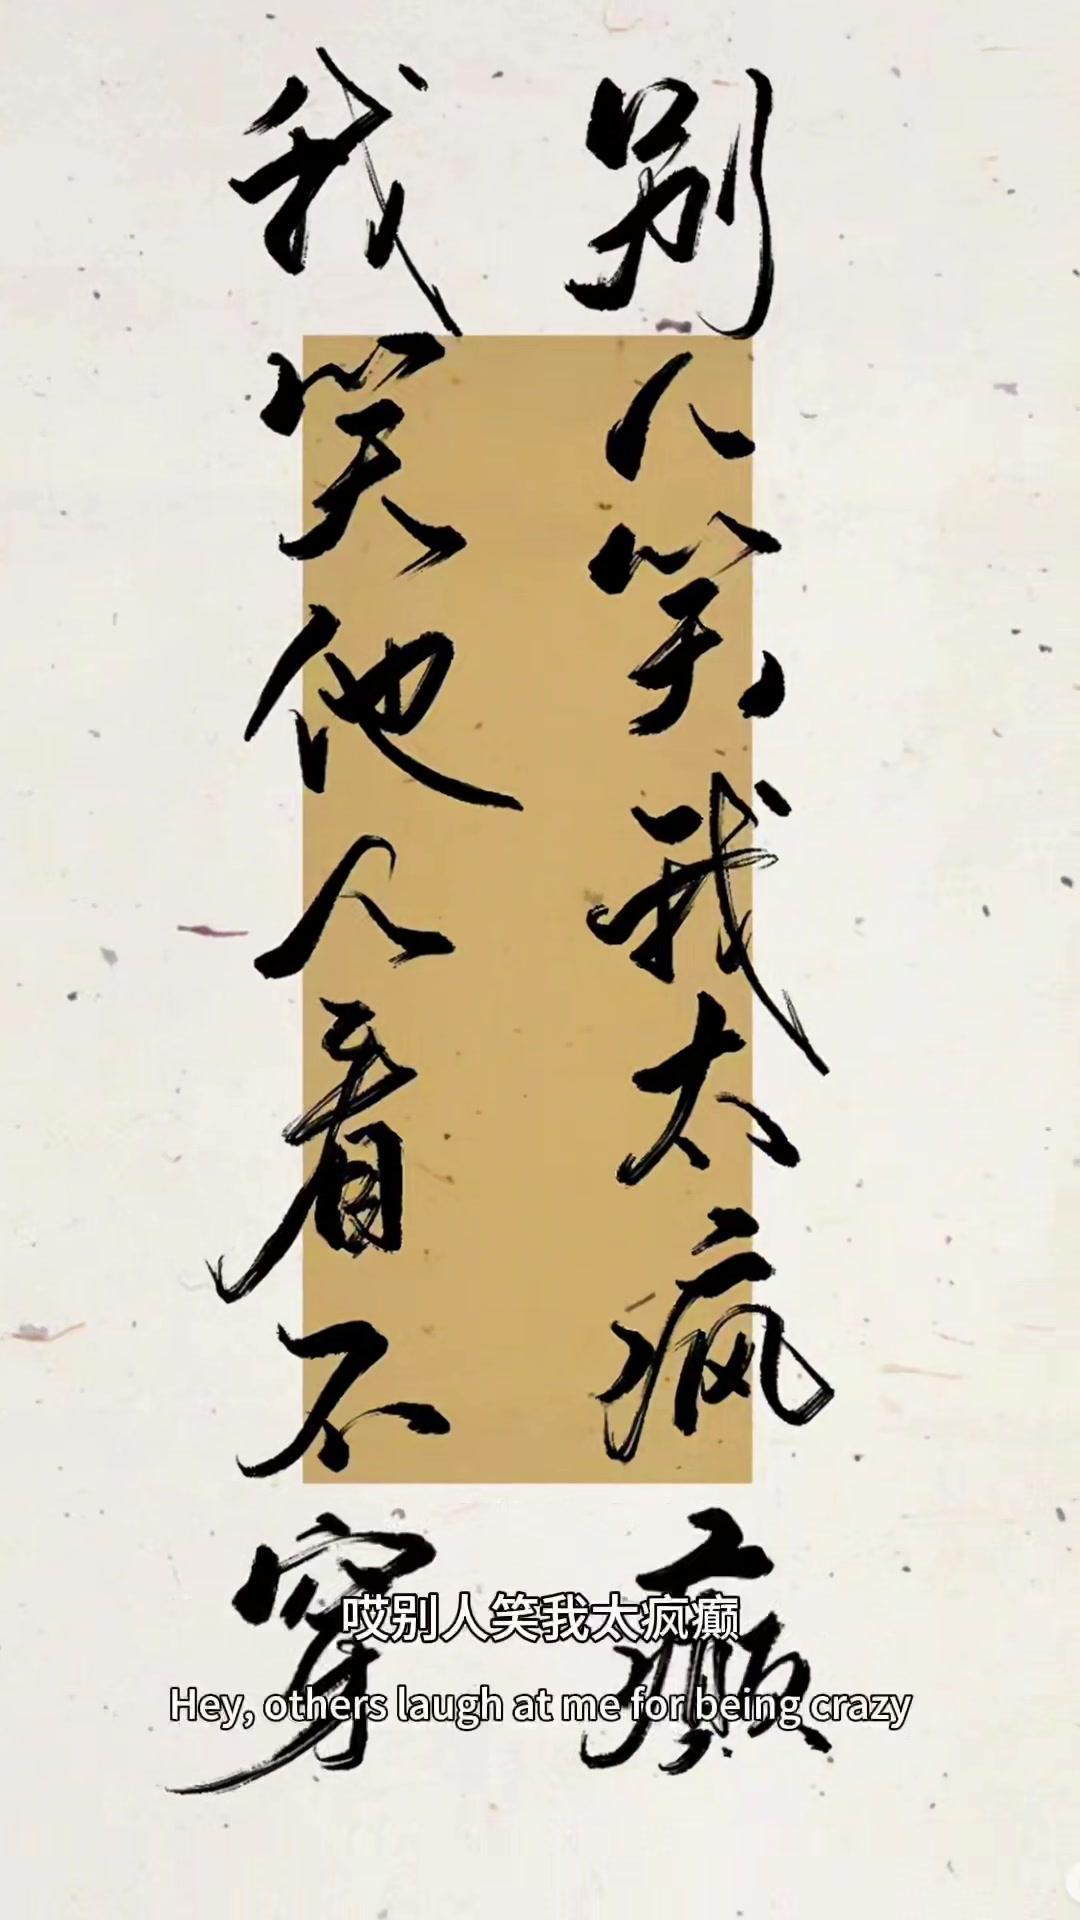 别人笑我太疯癫
我笑他人看不穿
哎别人笑我太疯癫
Hey, others laugh at me for being crazy